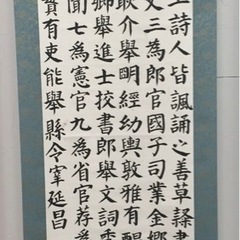 工詩人皆諷誦之善草隸書
又三為郎官國子司業金鄉
耿介舉明經幼輿敦雅有醞
卿舉進士挍書郎舉文詞秀
聞七為憲官九為省官荐為
質有吏能舉縣令宰延昌